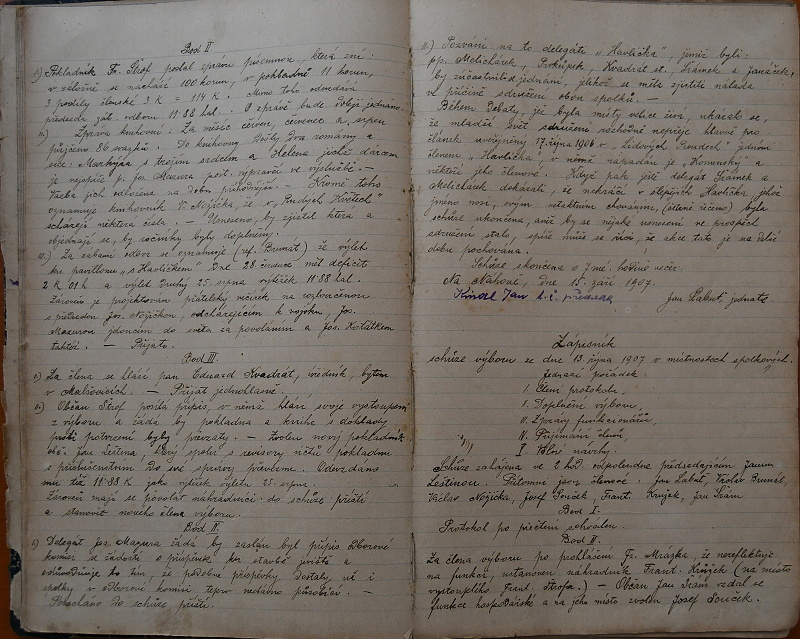 Bod II.
1.) Pokladník Fr. Štrof podal zprávu písemnou, která zní:
v záložně se nachází 100 korun, v pokladně 11 korun,
3 podíly členské 3 K = 114 K. Mimo toho odevzdává
předseda zab. odboru 11·88 hal. O zprávě bude později jednáno.
Zpráva knihovní: Za měsíc červen, červenec a srpen
půjčeno 86 svazků. Do knihovny došly dva romány a
sice: Markýza s trojím srdcem a Helena jichž dárcem
je nejspíše p. Jos. Mazura post. výpravčí ve výslužbě. —
Vazba jich odložena na dobu příhodnější. — Kromě toho
oznamuje knihovník V. Nožička, že v „Rudých Květech"
scházejí některá čísla. — Usneseno, by zjistil která a
objednají se, by ročníky byly doplněny.
Za zábavní odbor se oznamuje (ref. Brunát) že výlet
ku pavillonu „s Havlíčkem" dne 28. července měl deficit
2 K 01 h a výlet druhý 25. srpna výtěžek 11·88 hal.
Zároveň je projektován přátelský večírek na rozloučenou
s předsedou Jos. Nožičkou, odcházejícím k vojsku, Jos.
Mazurou jdoucím do světa za povoláním a Jos. Košťálkem
taktéž. — Přijato.
Bod III.
Za člena se hlásí pan Eduard Kvadrát, úředník, bytem
v Malšovicích. — Přijat jednohlasně.
Občan Štrof posílá přípis, v němž hlásí svoje vystoupení
z výboru a žádá by pokladna a kniha s doklady
proti potvrzení byly převzaty. — Zvolen nový pokladník
obč. Jan Leština, který spolu s revisory účtů pokladnu
s příslušenstvím do své správy převezme. Odevzdáno
mu též 11·88 K jako výtěžek výletu 25. srpna.
Zároveň mají se povolat náhradníci do schůze příští
a stanovit nového člena výboru.
Bod IV.
Delegát Jos. Mazura žádá by zaslán byl přípis Oborové
komisi se žádostí o příspěvek ku stavbě jeviště a
odůvodňuje to tím, že podobné příspěvky dostaly už i
spolky v Oborové komisi teprv nedávno působící. —
Odloženo do schůze příští.
11.) Pozváni na to delegáti „Havlíčka", jimiž byli:
pp. Melichárek, Prokůpek, Kvadrát st., Šrámek a Janáček,
by zúčastnili jednání, jelikož se měla zjistiti nálada
ve příčině sdružení obou spolků. —
Během debaty, jež byla místy velice živá, ukázalo se,
že mladší svět sdružení rozhodně nepřeje hlavně pro
článek uveřejněný 17. října 1906 v „Lidových Proudech" jedním
členem „Havlíčka", v němž napadán je „Komenský" a
někteří jeho členové. Když pak ještě delegát Šrámek a
Melichárek dokázali, že nekráčí v šlépějích Havlíčka, jehož
jméno nosí, svým netaktním chováním, (slušně řečeno) byla
schůze ukončena, aniž by se nějaké usnesení ve prospěch
sdružení stalo, spíše může se říci, že akce tato je na delší
dobu pochována.
Schůze skončena o 7mé hodině večer.
Na Náhoně, dne 15. září 1907.
Kindl Jan t.č. předseda Jan Labuť jednatel
Zápisník
schůze výboru ze dne 13. října 1907 v místnostech spolkových.
Jednací pořádek:
I. Čtení protokolu,
II. Doplnění výboru,
III. Zprávy funkcionářů,
IV. Přijímání členů,
V. Volné návrhy.
Schůze zahájena ve 2 hod. odpoledne předsedajícím Janem
Leštinou. Přítomni jsou členové: Jan Labuť, Václav Brunát,
Václav Nožička, Josef Souček, Frant. Kružek, Jan Šrám
Bod I.
Protokol po přečtení schválen.
Bod II.
Za člena výboru po prohlášení Fr. Mrázka, že nereflektuje
na funkci, ustanoven náhradník Frant. Kružek (na místo
vystouplého Frant. Štrofa.) — Občan Jan Šrám vzdal se
funkce hospodářské a na jeho místo zvolen Josef Souček.